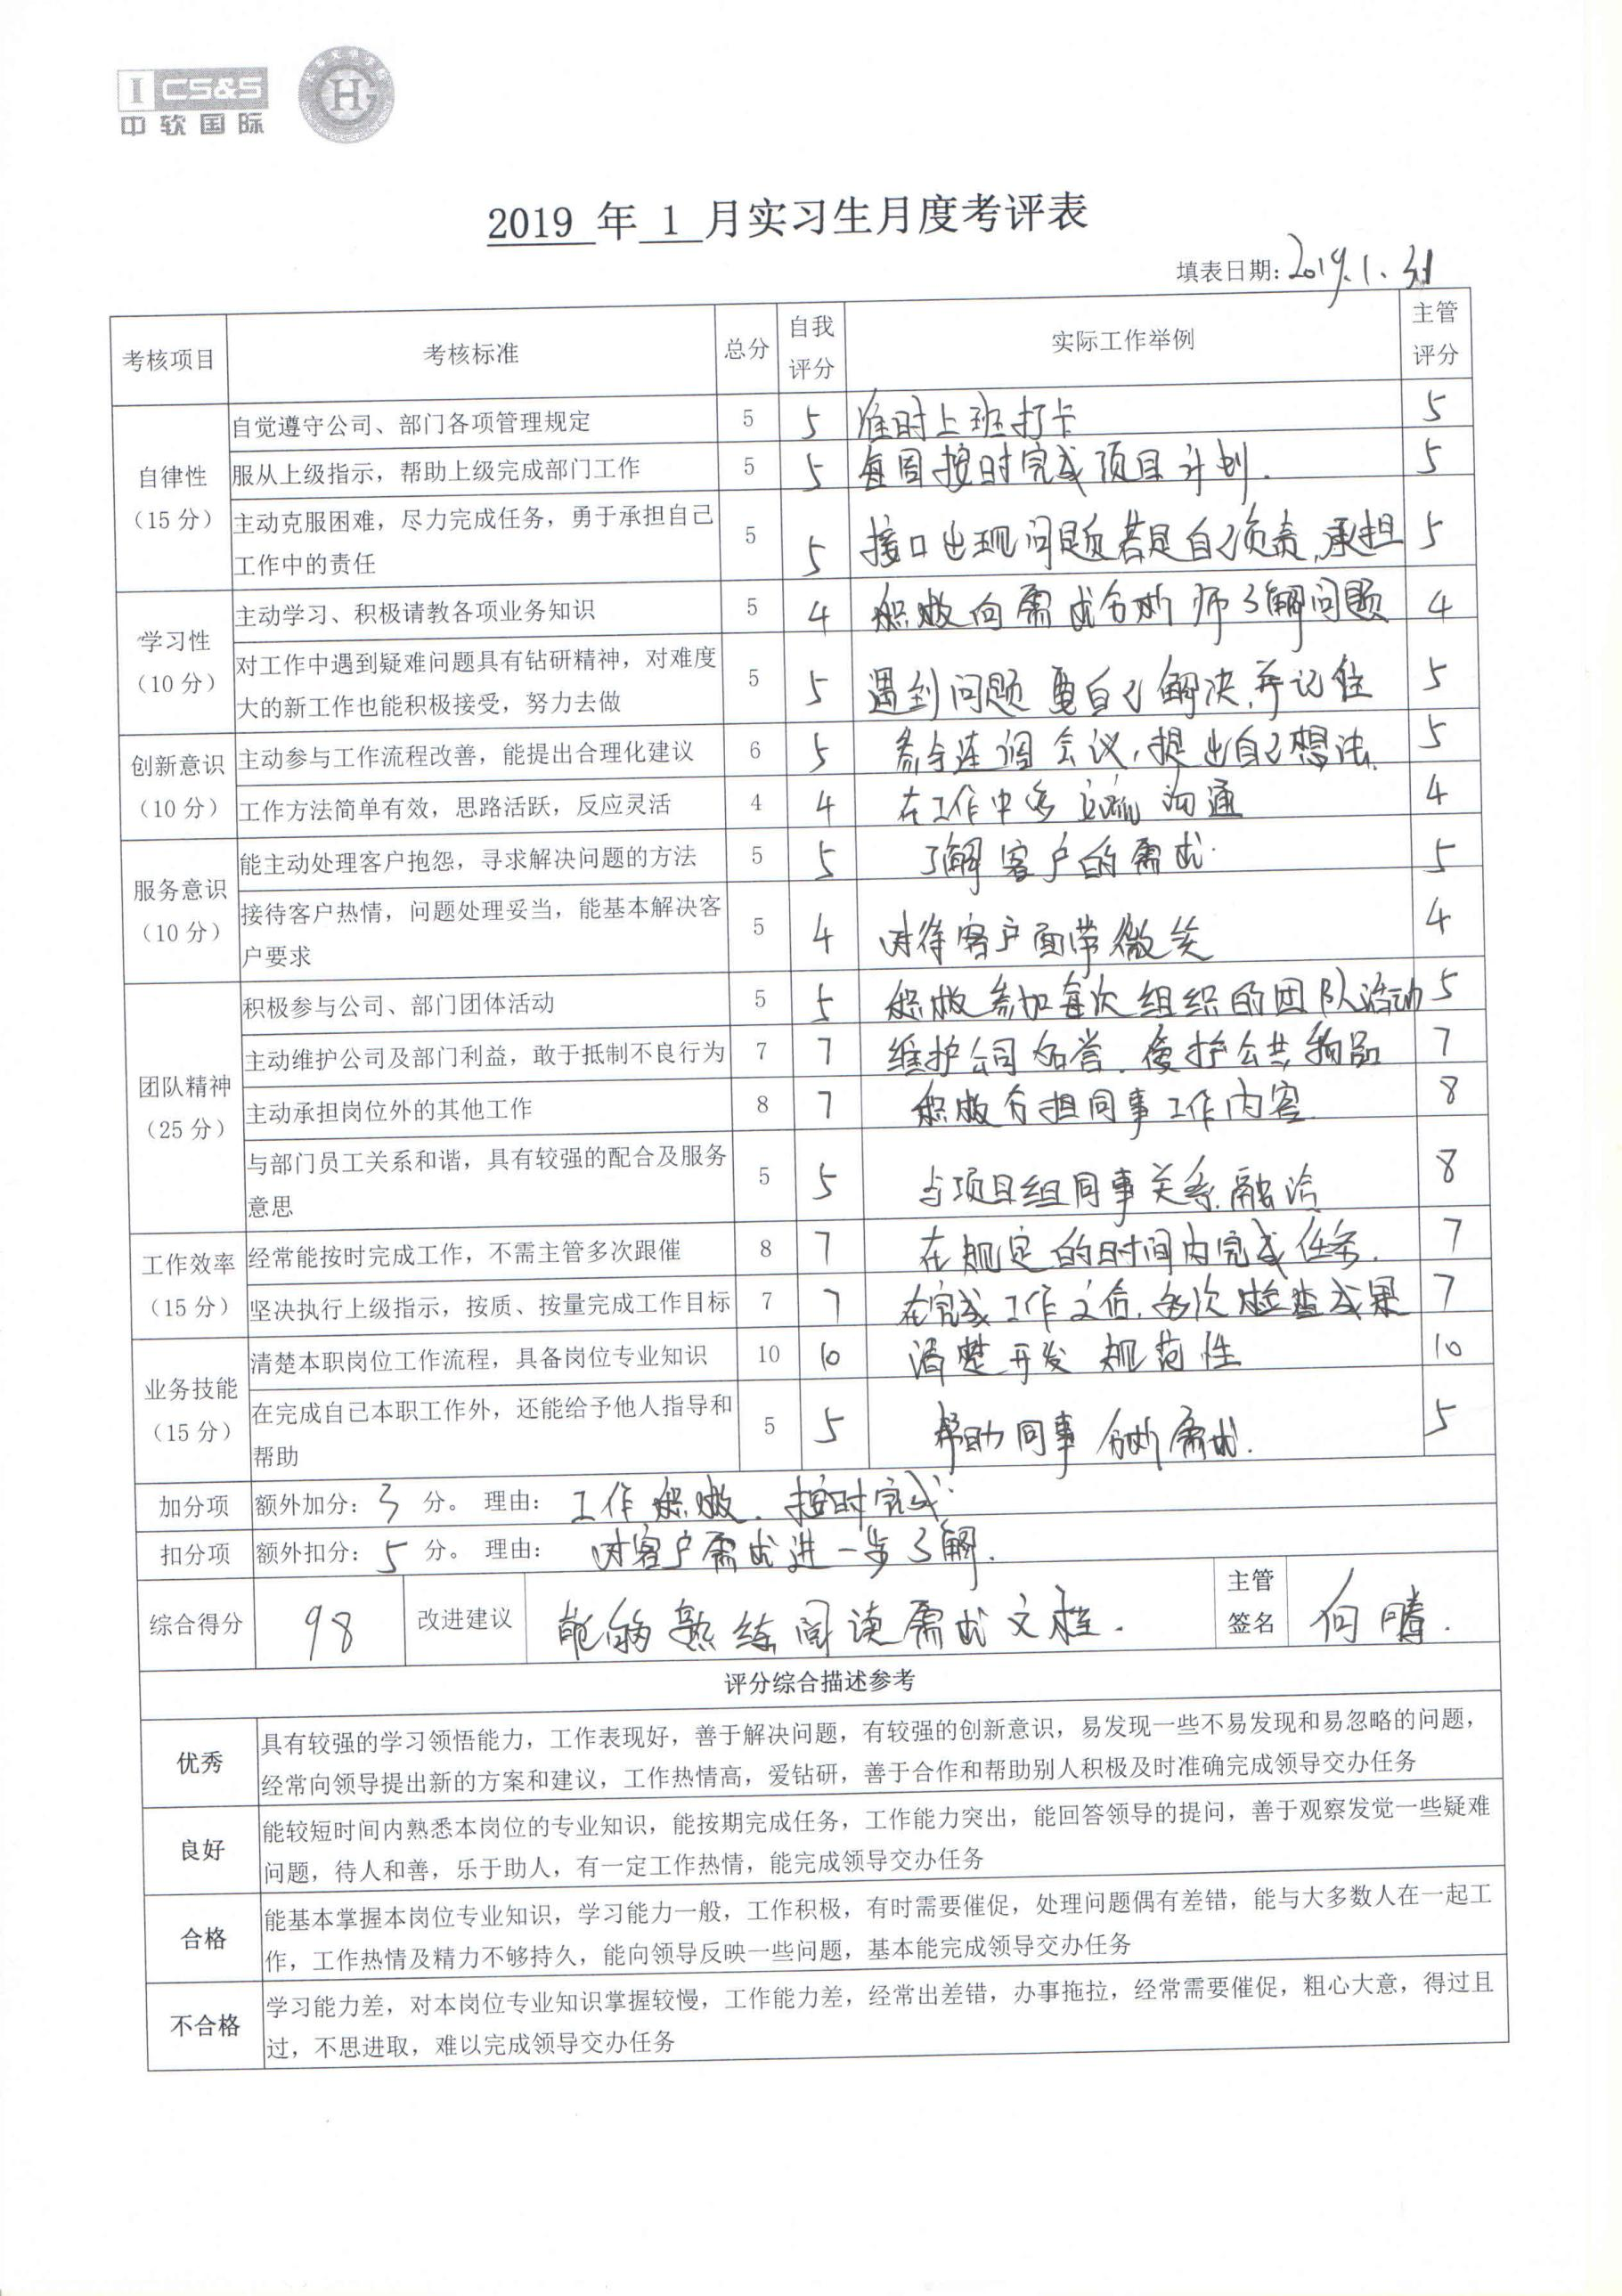 I CS&S
中软国际
HG
2019 年 1 月实习生月度考评表
填表日期：2019.1.31
考核项目 考核标准 总分 自我评分 实际工作举例 主管评分
自律性（15 分）
自觉遵守公司、部门各项管理规定 5 5 准时上班打卡 5
服从上级指示，帮助上级完成部门工作 5 5 每周按时完成项目计划. 5
主动克服困难，尽力完成任务，勇于承担自己
工作中的责任 5 5 接口出现问题若是自己负责,承担 5
学习性（10 分）
主动学习、积极请教各项业务知识 5 4 积极向需求分析师了解问题 4
对工作中遇到疑难问题具有钻研精神，对难度
大的新工作也能积极接受，努力去做 5 5 遇到问题要自己解决,并记住 5
创新意识（10 分）
主动参与工作流程改善，能提出合理化建议 6 5 参与连调会议,提出自己想法. 5
工作方法简单有效，思路活跃，反应灵活 4 4 在工作中多交流沟通 4
服务意识（10 分）
能主动处理客户抱怨，寻求解决问题的方法 5 5 了解客户的需求. 5
接待客户热情，问题处理妥当，能基本解决客
户要求 5 4 对待客户面带微笑 4
团队精神（25 分）
积极参与公司、部门团体活动 5 5 积极参加每次组织的团队活动 5
主动维护公司及部门利益，敢于抵制不良行为 7 7 维护公司名誉.爱护公共物品 7
主动承担岗位外的其他工作 8 7 积极分担同事工作内容. 8
与部门员工关系和谐，具有较强的配合及服务
意思 5 5 与项目组同事关系融洽 8
工作效率（15 分）
经常能按时完成工作，不需主管多次跟催 8 7 在规定的时间内完成任务. 7
坚决执行上级指示，按质、按量完成工作目标 7 7 在完成工作之后,多次检查成果 7
业务技能（15 分）
清楚本职岗位工作流程，具备岗位专业知识 10 10 清楚开发规范性 10
在完成自己本职工作外，还能给予他人指导和
帮助 5 5 帮助同事分析需求. 5
加分项 额外加分：3 分。 理由： 工作积极.按时完成.
扣分项 额外扣分：5 分。 理由： 对客户需求进一步了解.
综合得分 98 改进建议 能够熟练阅读需求文档. 主管签名 何腾.
评分综合描述参考
优秀 具有较强的学习领悟能力，工作表现好，善于解决问题，有较强的创新意识，易发现一些不易发现和易忽略的问题，
经常向领导提出新的方案和建议，工作热情高，爱钻研，善于合作和帮助别人积极及时准确完成领导交办任务
良好 能较短时间内熟悉本岗位的专业知识，能按期完成任务，工作能力突出，能回答领导的提问，善于观察发觉一些疑难
问题，待人和善，乐于助人，有一定工作热情，能完成领导交办任务
合格 能基本掌握本岗位专业知识，学习能力一般，工作积极，有时需要催促，处理问题偶有差错，能与大多数人在一起工
作，工作热情及精力不够持久，能向领导反映一些问题，基本能完成领导交办任务
不合格 学习能力差，对本岗位专业知识掌握较慢，工作能力差，经常出差错，办事拖拉，经常需要催促，粗心大意，得过且
过，不思进取，难以完成领导交办任务